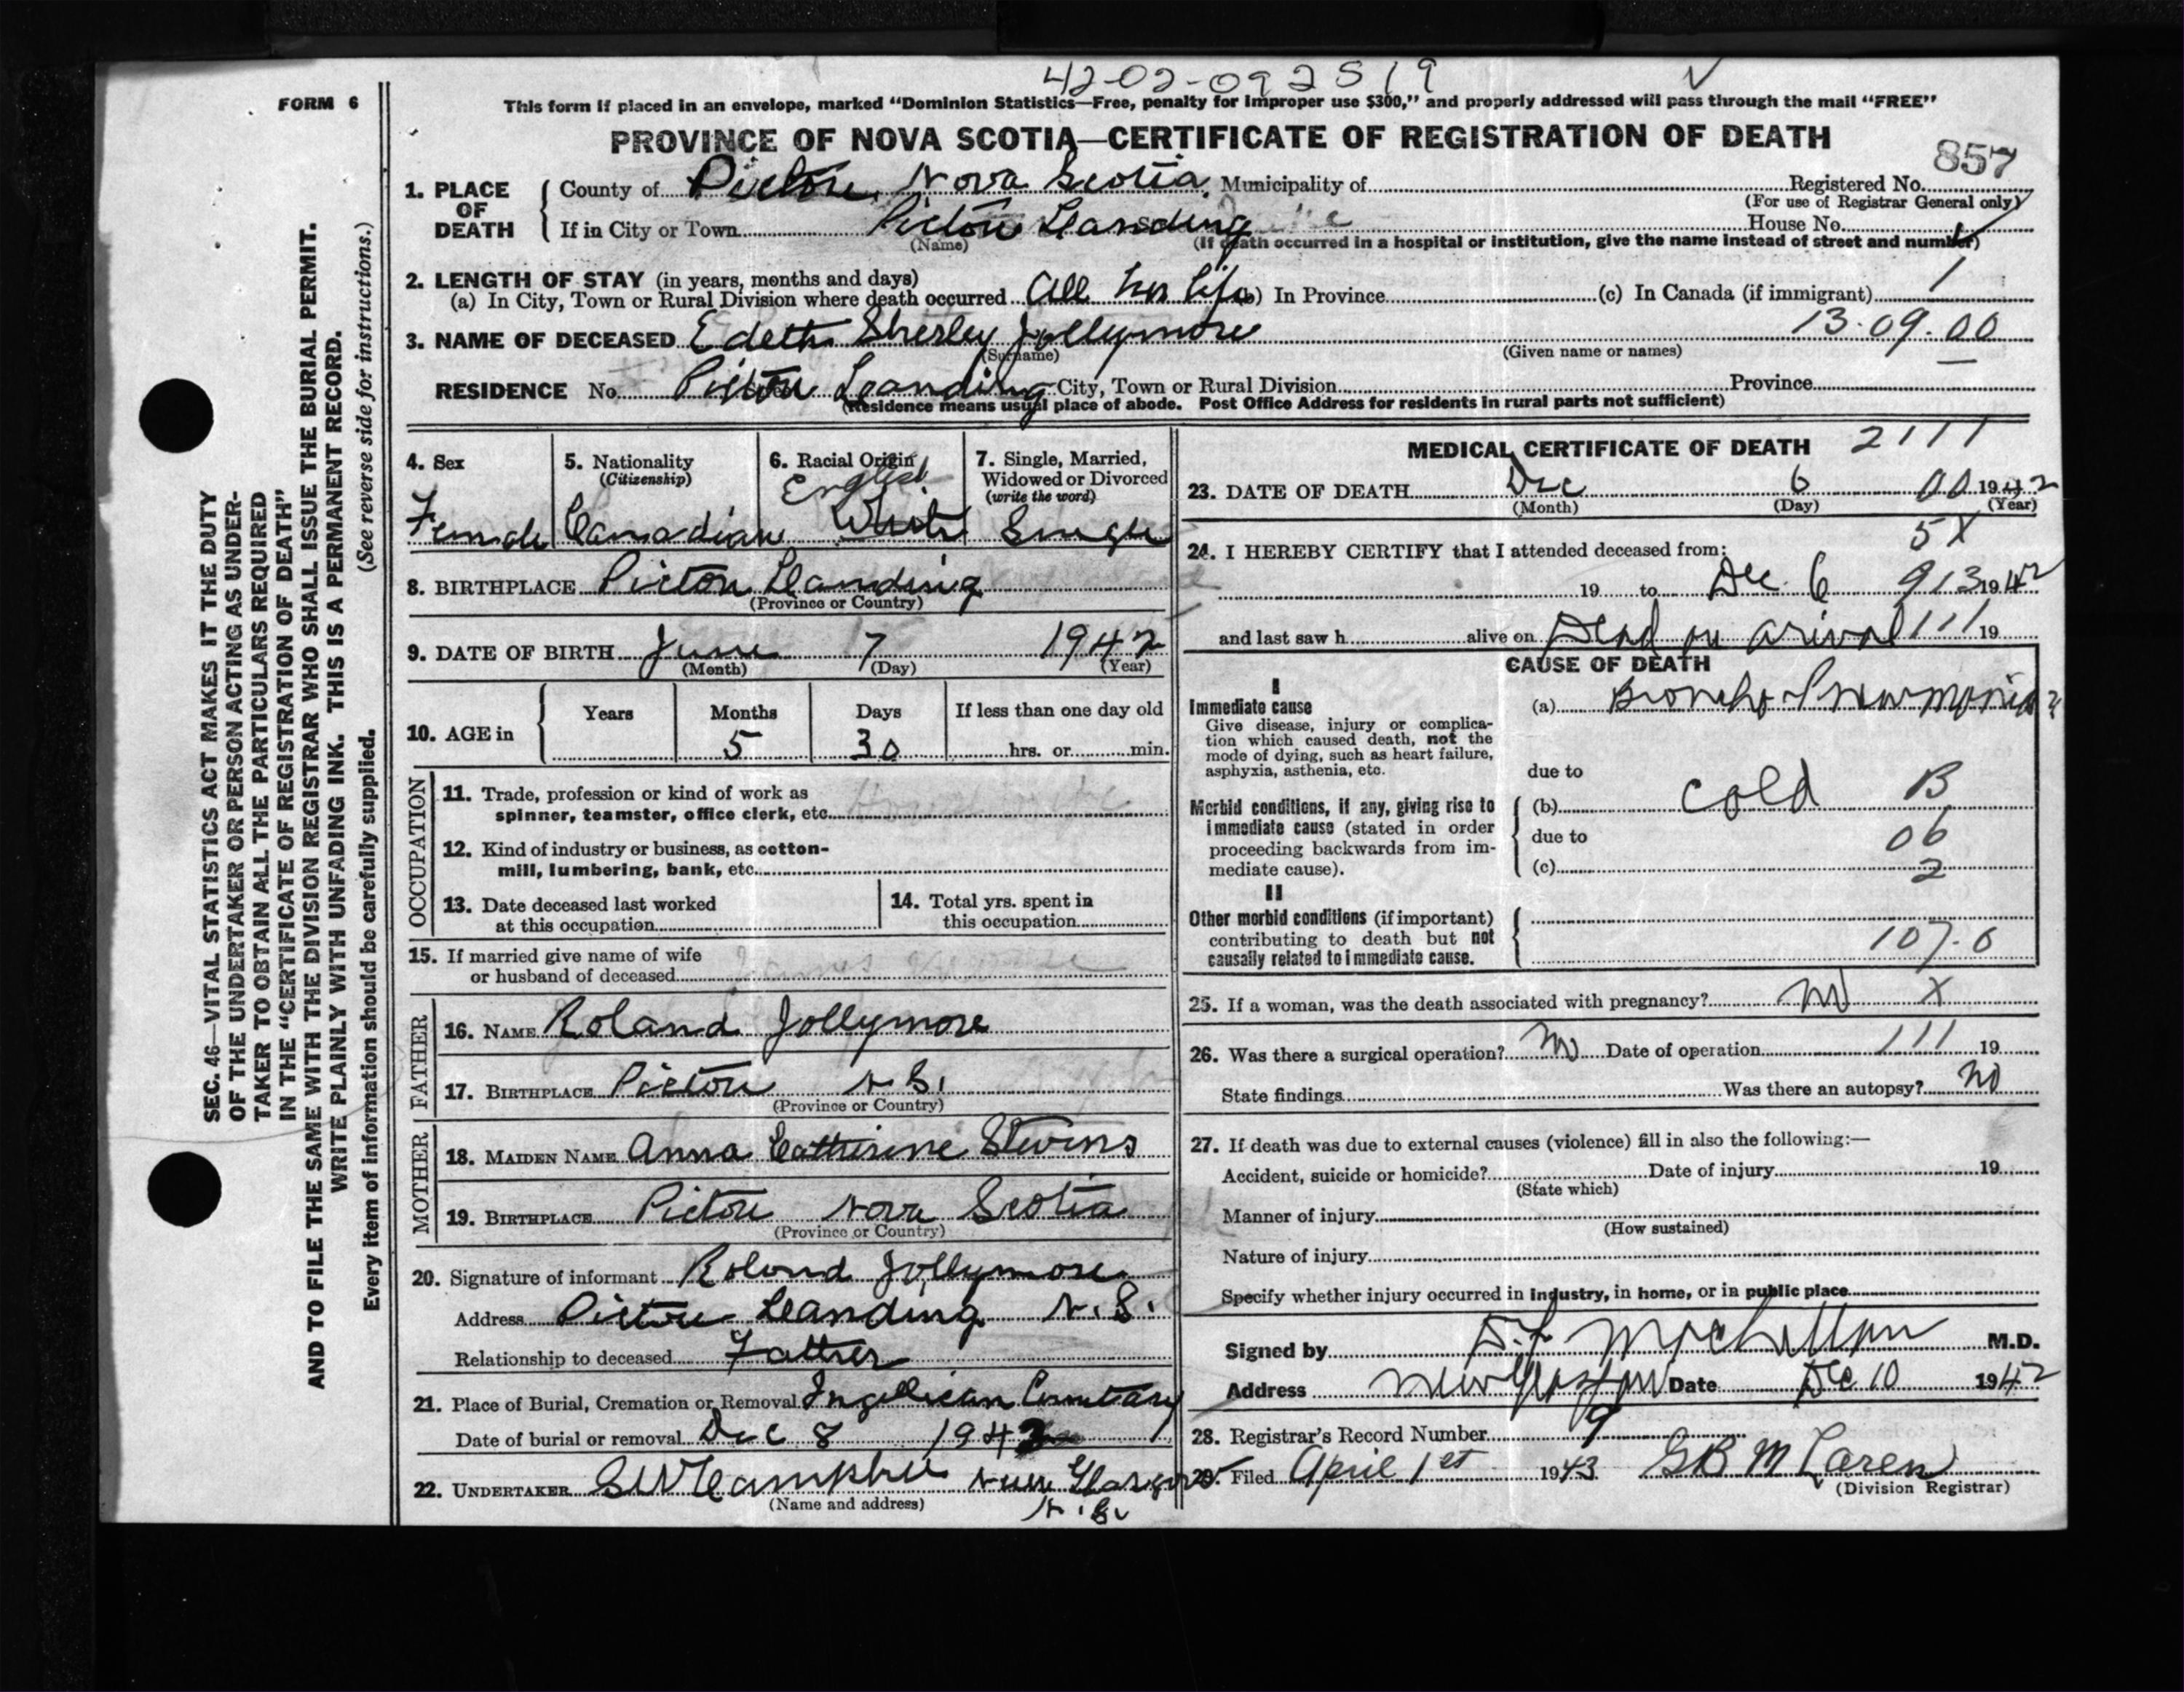 42-02-092519
FORM 6
This form if placed in an envelope, marked "Dominion Statistics—Free, penalty for improper use $300," and properly addressed will pass through the mail "FREE"
PROVINCE OF NOVA SCOTIA—CERTIFICATE OF REGISTRATION OF DEATH
857
1. PLACE OF DEATH County of Pictou, Nova Scotia, Municipality of Registered No.
(For use of Registrar General only)
If in City or Town Pictou Leanding House No.
(Name) (If death occurred in a hospital or institution, give the name instead of street and number)
2. LENGTH OF STAY (in years, months and days)
(a) In City, Town or Rural Division where death occurred All her life (b) In Province (c) In Canada (if immigrant) 1
3. NAME OF DECEASED Edeth Sherley Jollymore 13.09.00
(Surname) (Given name or names)
RESIDENCE No. Pictou Leanding City, Town or Rural Division Province
(Residence means usual place of abode. Post Office Address for residents in rural parts not sufficient)
4. Sex 5. Nationality (Citizenship) 6. Racial Origin 7. Single, Married, Widowed or Divorced (write the word)
English
Female Canadian White Single
8. BIRTHPLACE Pictou Leanding
(Province or Country)
9. DATE OF BIRTH June 7 1942
(Month) (Day) (Year)
10. AGE in Years Months Days If less than one day old
5 30 hrs. or min.
OCCUPATION
11. Trade, profession or kind of work as spinner, teamster, office clerk, etc.
12. Kind of industry or business, as cotton-mill, lumbering, bank, etc.
13. Date deceased last worked at this occupation
14. Total yrs. spent in this occupation
15. If married give name of wife or husband of deceased
FATHER
16. NAME Roland Jollymore
17. BIRTHPLACE Pictou N.S.
(Province or Country)
MOTHER
18. MAIDEN NAME Anna Catherine Stevens
19. BIRTHPLACE Pictou Nova Scotia
(Province or Country)
20. Signature of informant Roland Jollymore
Address Pictou Leanding N.S.
Relationship to deceased Father
21. Place of Burial, Cremation or Removal Ingellican Cemetary
Date of burial or removal Dec 8 1942
22. UNDERTAKER New Glasgow
(Name and address) N.S.
MEDICAL CERTIFICATE OF DEATH 2111
23. DATE OF DEATH Dec 6 00 1942
(Month) (Day) (Year)
5X
24. I HEREBY CERTIFY that I attended deceased from:
19 to Dec. 6 913 1942
and last saw h alive on Dead on arival 111 19
CAUSE OF DEATH
I
Immediate cause
Give disease, injury or complication which caused death, not the mode of dying, such as heart failure, asphyxia, asthenia, etc.
(a) Broncho-Pneumonia?
due to
Morbid conditions, if any, giving rise to immediate cause (stated in order proceeding backwards from immediate cause).
(b) cold B
due to 06
(c) 2
II
Other morbid conditions (if important) contributing to death but not causally related to immediate cause.
107.0
25. If a woman, was the death associated with pregnancy? No X
26. Was there a surgical operation? No Date of operation 111 19
State findings Was there an autopsy? No
27. If death was due to external causes (violence) fill in also the following:—
Accident, suicide or homicide? Date of injury 19
(State which)
Manner of injury
(How sustained)
Nature of injury
Specify whether injury occurred in industry, in home, or in public place
Signed by M.D.
Address New Glasgow Date Dec 10 1942
28. Registrar's Record Number 9
29. Filed April 1st 1943 GB McLaren
(Division Registrar)
SEC. 46—VITAL STATISTICS ACT MAKES IT THE DUTY
OF THE UNDERTAKER OR PERSON ACTING AS UNDER-
TAKER TO OBTAIN ALL THE PARTICULARS REQUIRED
IN THE "CERTIFICATE OF REGISTRATION OF DEATH"
AND TO FILE THE SAME WITH THE DIVISION REGISTRAR WHO SHALL ISSUE THE BURIAL PERMIT.
WRITE PLAINLY WITH UNFADING INK. THIS IS A PERMANENT RECORD.
Every item of information should be carefully supplied. (See reverse side for instructions.)